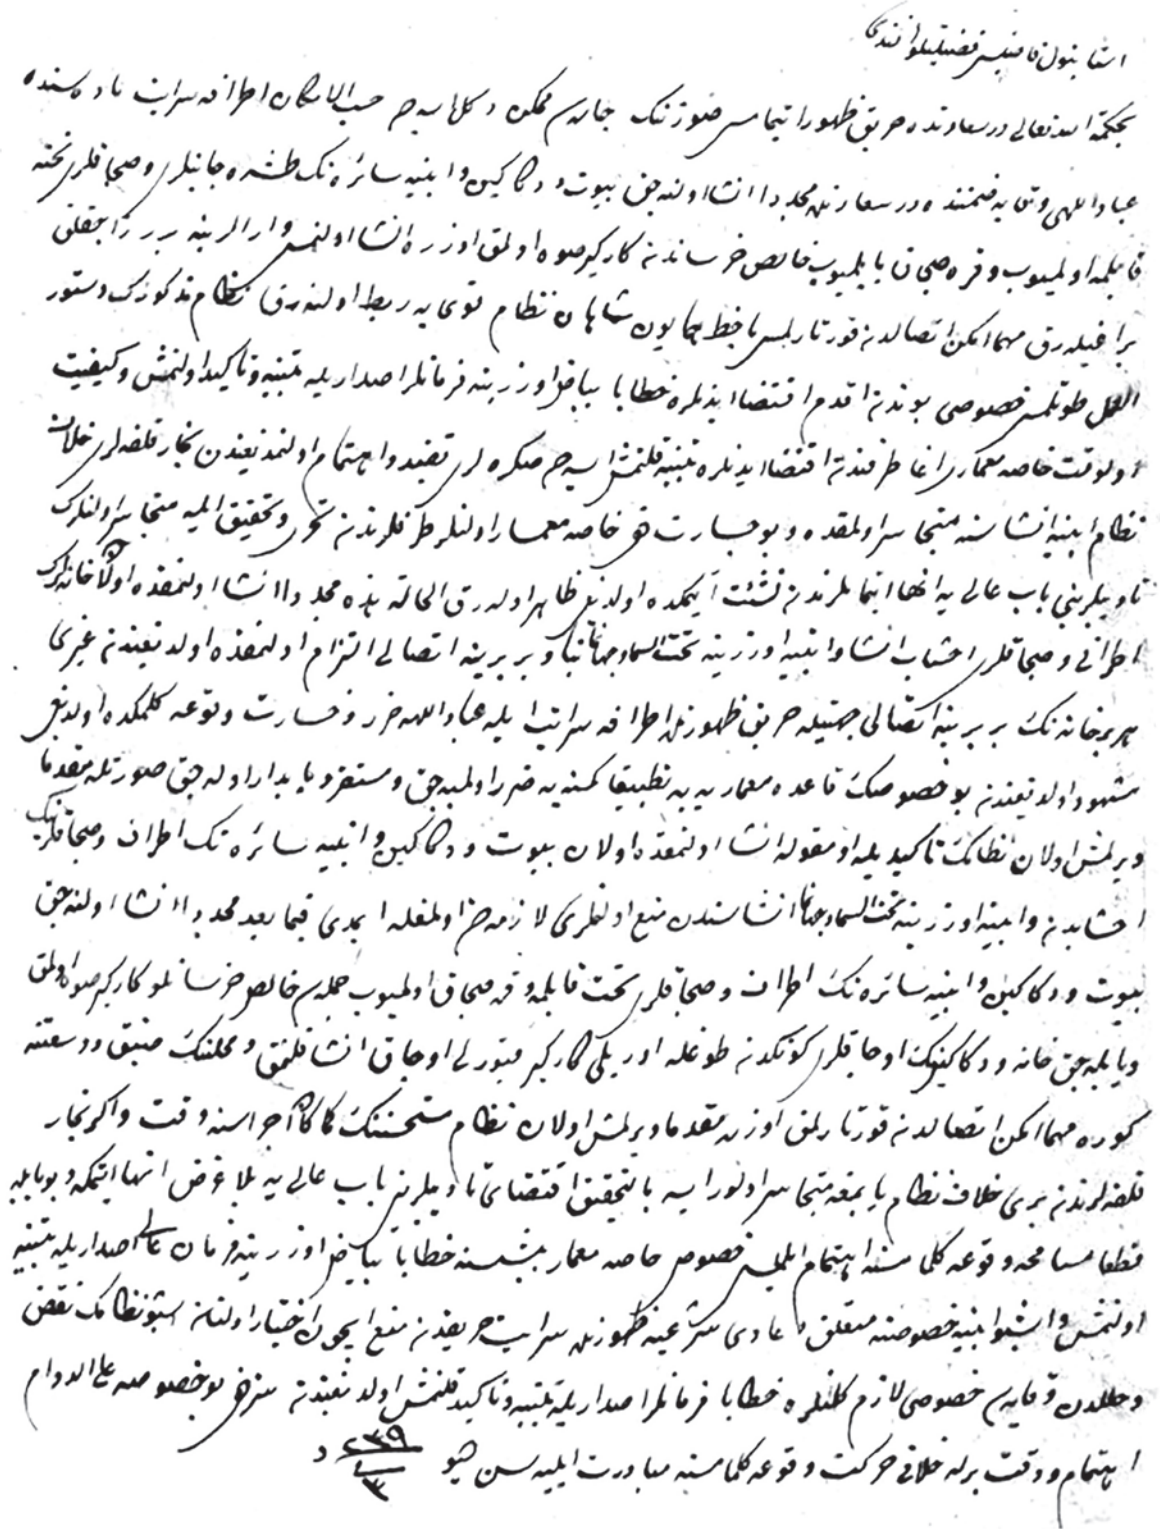 استانبول قاضيسى فضيلتلو افندى
بحكمة الله تعالى در سعادتده حريق ظهور ايتمامسى ضورتنك چاره سى ممكن دكل ايسه ده حسب الامكان اطرافه سرايت ماده سنده
عباد اللهى وقايه ضمننده در سعادتده مجددا انشا اولنه جق بيوت و دكاكين و ابنيه سائره نك طشره جانبلرى و صچاقلرى تخته
قاپلمه اولميوب و قره صچاق ياپلميوب خالص خرساندن كاركير صوه اولمق اوزره انشا اولنمسى و ارالرينه برر ذراع جقلق
براغيله رق مهما امكن اتصالدن قورتارلمسى باخط همايون شاهانه نظام قوى يه ربط اولنه رق نظام مذكورك دستور
العمل طوتلمسى خصوصى بوندن اقدم اقتضا ايدنلره خطابا بياض اوزرينه فرمانلر اصداريله تنبيه و تأكيد اولنمش و كيفيت
اولوقت خاصه معمارى اغا طرفندن اقتضا ايدنلره تنبيه قلنمش ايسه ده صكره لرى تقيد و اهتمام اولنمديغندن نجار قلفه لرى خلاف
نظام ابنيه انشاسنه متجاسر اولمقده و بو جسارت دخى خاصه معمار اولنلر طرفلرندن تحرى و تحقيق ايله متجاسر اولنلرك
تأديبلرينى باب عالى يه انها ايتماملرندن نشئت ايتمكده اولديغى ظاهر اوله رق الحالة هذه مجددا انشا اولنمقده اولان خانه لرك
اطرافى و صچاقلرى اخشاب انشا و ابنيه اوزرينه تحت السما و جهاننما بنا و بر برينه اتصالى التزام اولنمقده اولديغندن غيرى
هر بر خانه نك بر برينه اتصالى جهتيله حريق ظهورنده اطرافه سرايتى ايله عباد اللهه ضرر و خسارت وقوعه كلمكده اولديغى
مشهود اولديغندن بو خصوصك قاعده معماريه يه تطبيقا كمسنه يه ضرر اولميه جق و مستقر و پايدار اوله جق صورتله مقدما
ويرلمش اولان نظامك تأكيديله او مقوله انشا اولنمقده اولان بيوت و دكاكين و ابنيه سائره نك اطراف و صچاقلرينك
اخشابدن و ابنيه اوزرينه تحت السما و جهاننما انشاسندن منع اولنملرى لازمه دن اولمغله ايمدى فيما بعد مجددا انشا اولنه جق
بيوت و دكاكين و ابنيه سائره نك اطراف و صچاقلرى تخته قاپلمه و قره صچاق اولميوب جمله سى خالص خرسانلو كاركير صوه اولمق
و ياپيله جق خانه و دكاكينك اوجاقلرى كوتكدن طوغله اوريلى كاركير قبورلى اوجاق انشا قلنمق و محلنك ضيق و وسعتنه
كوره مهما امكن اتصالدن قورتارلمق اوزره مقدما ويرلمش اولان نظام مستحسننك كماكان اجراسنه دقت و اكر نجار
قلفه لرندن برى خلاف نظام ياپمغه متجاسر اولور ايسه بالتحقيق اقتضاى تأديبلرينى باب عالى يه بلا غرض انها ايتمكه و بو بابده
قطعا مسامحه وقوعه كلمامسنه اهتمام ايلمسى خصوصى خاصه معمار باشيسنه خطابا بياض اوزرينه فرمان عالى اصداريله تنبيه
اولنمش و اشبو ابنيه خصوصنه متعلق دعاوى شرعيه ظهورنده سرايت حريقدن منع ايچون اختيار اولنان اشبو نظامك نقض
و خللدن وقايه سى خصوصى لازم كلنلره خطابا فرمانلر اصداريله تنبيه و تأكيد قلنمش اولديغندن سز دخى بو خصوصه على الدوام
اهتمام و دقت برله خلافى حركت وقوعه كلمامسنه مبادرت ايليه سن ديو
٢٣٩